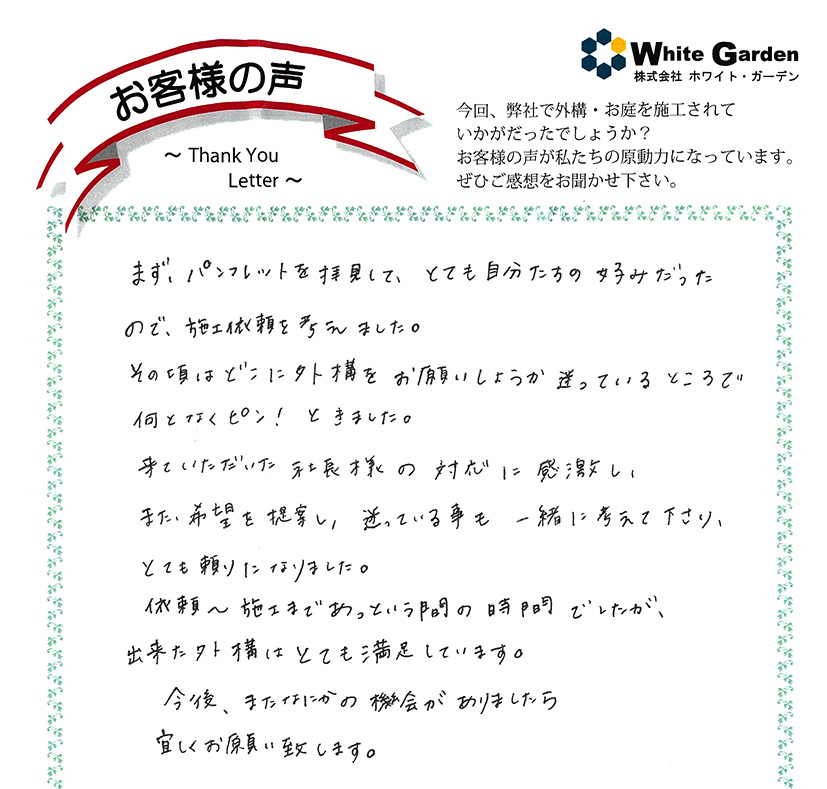 お客様の声
〜 Thank You
Letter 〜
White Garden
株式会社 ホワイト・ガーデン
今回、弊社で外構・お庭を施工されて
いかがだったでしょうか？
お客様の声が私たちの原動力になっています。
ぜひご感想をお聞かせ下さい。
まず、パンフレットを拝見して、とても自分たちの好みだった
ので、施工依頼を考えました。
その頃はどこに外構をお願いしようか迷っているところで
何となくピン！ときました。
来ていただいた社長様の対応に感激し、
また、希望を提案し、迷っている事も一緒に考えて下さり、
とても頼りになりました。
依頼〜施工まであっという間の時間でしたが、
出来た外構はとても満足しています。
今後、またなにかの機会がありましたら
宜しくお願い致します。